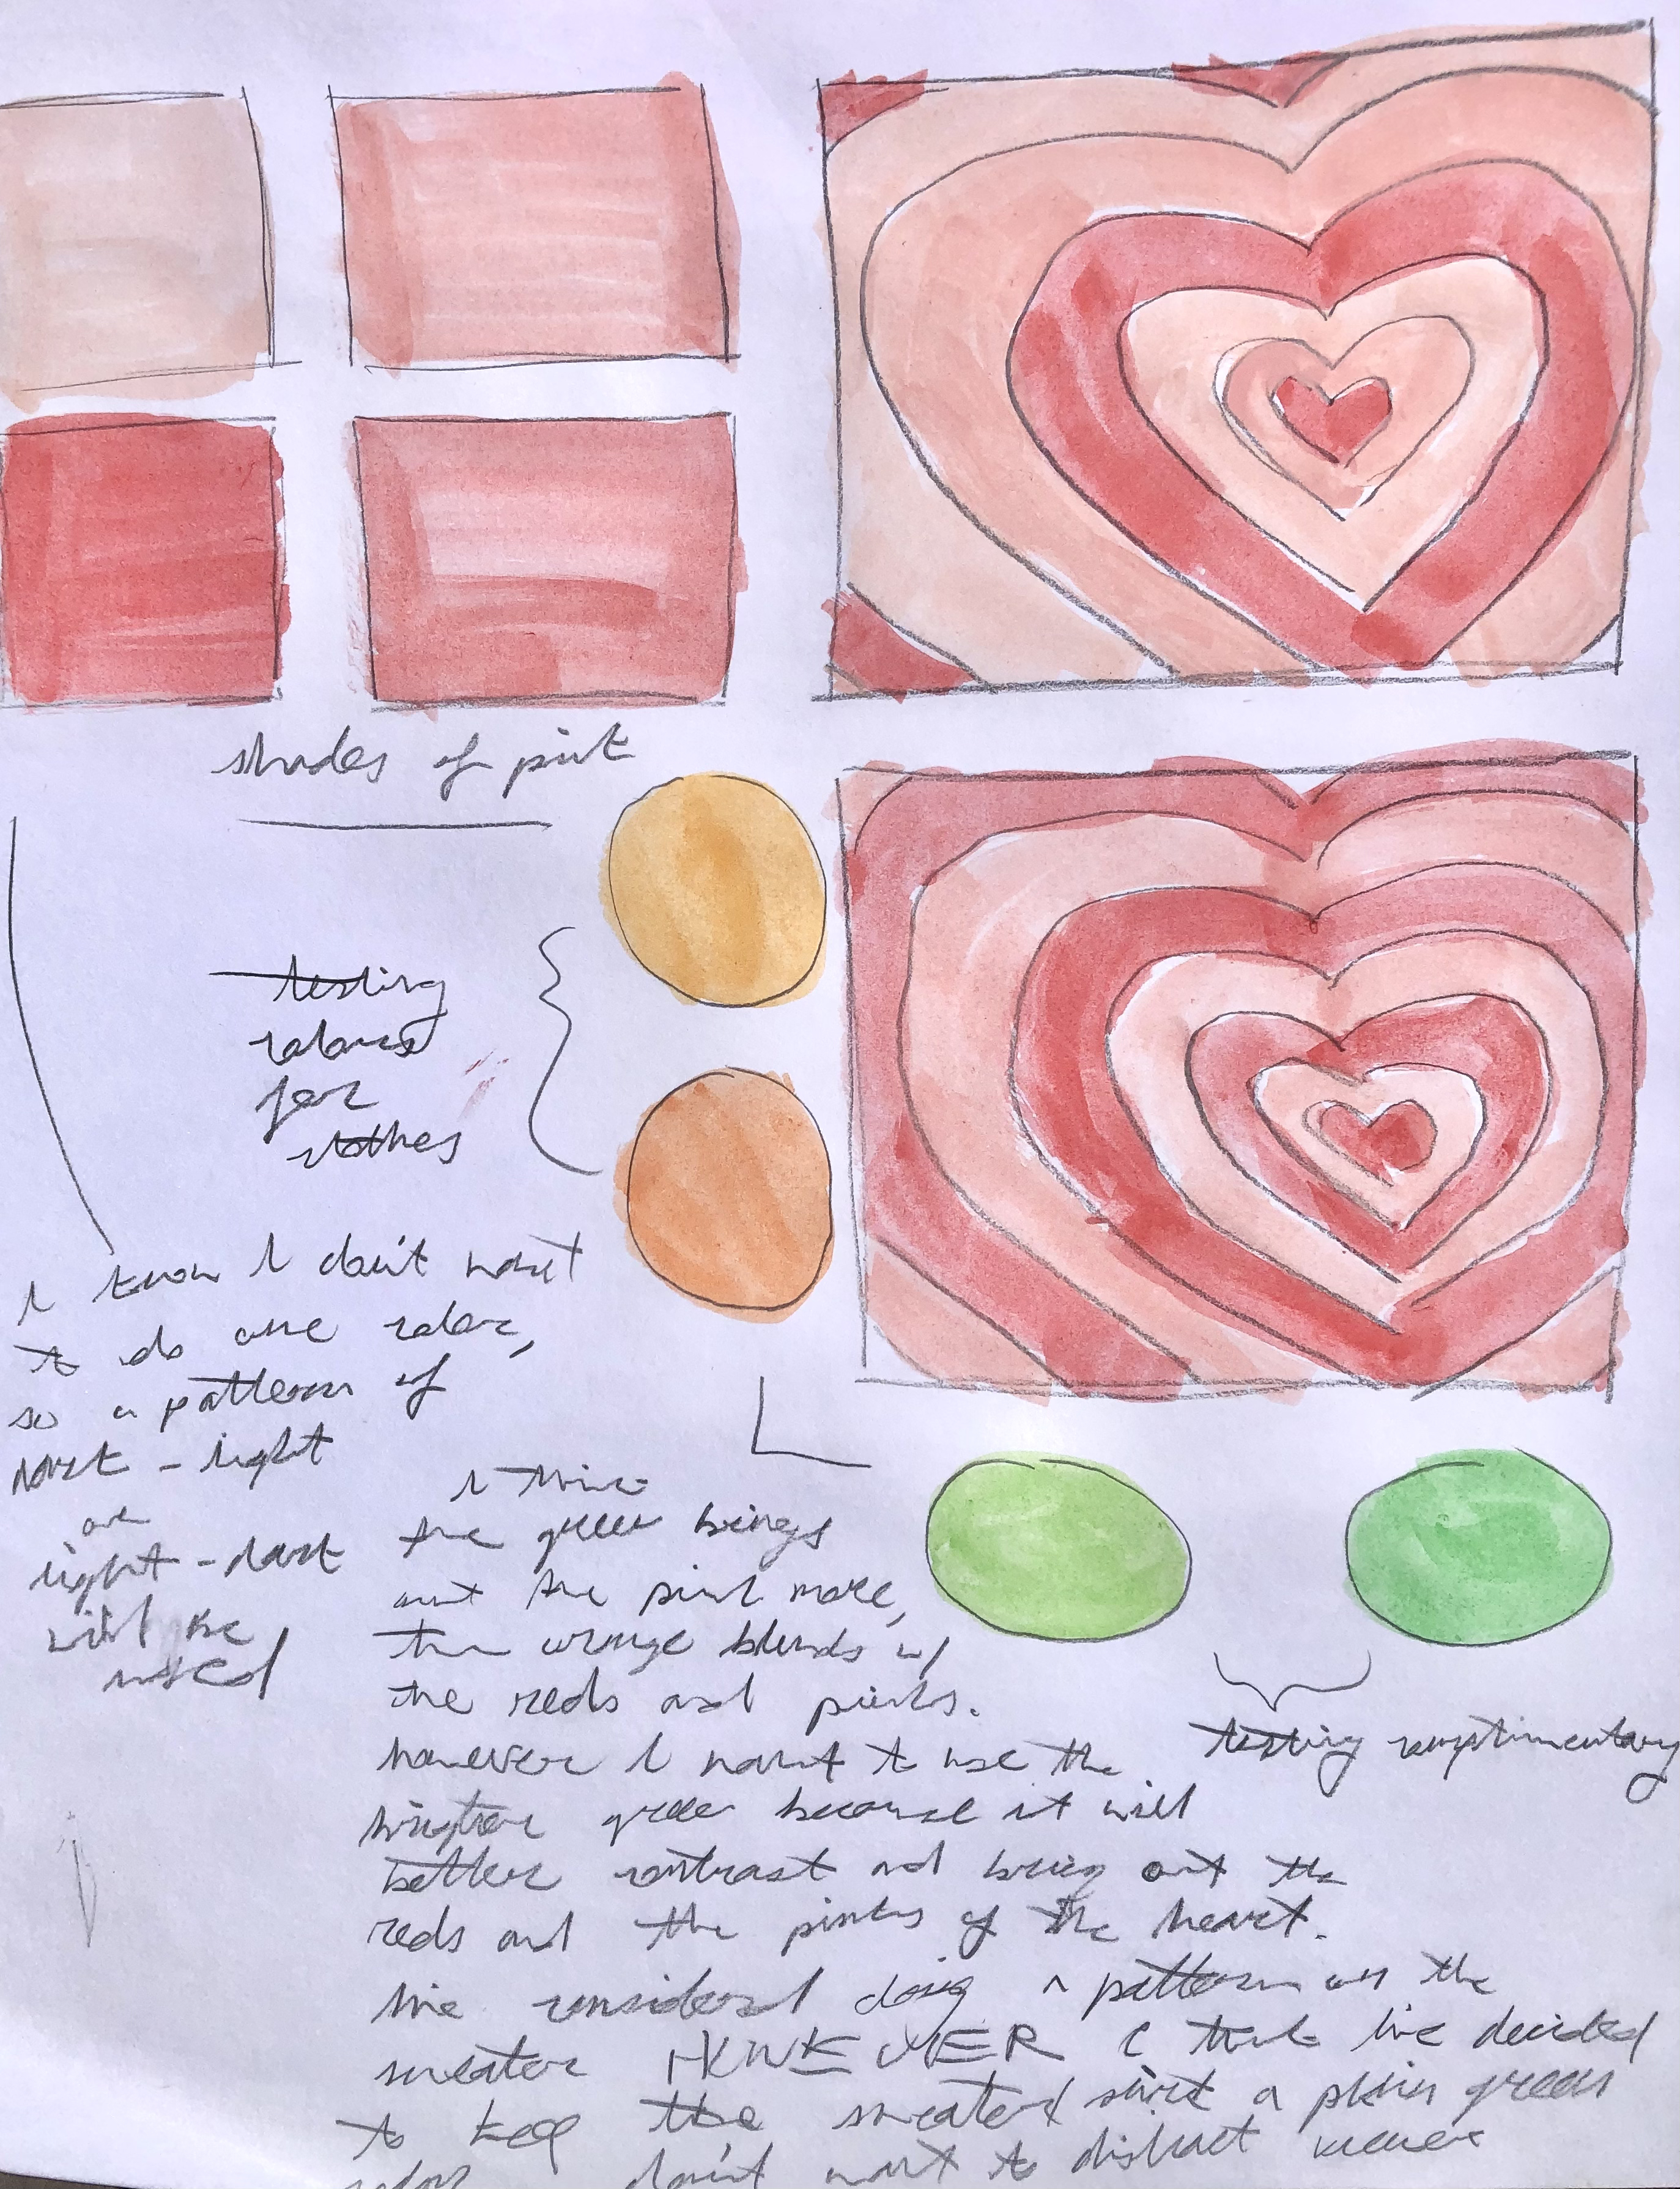 shades of pink
testing
colors
for
clothes
I know I don't want
to do one color,
so a pattern of
dark - light
or
light - dark
will be
used
I think
the green brings
out the pink more,
the orange blends w/
the reds and pinks.
testing complimentary
however I want to use the
brighter green because it will
better contrast and bring out the
reds and the pinks of the heart.
I've considered doing a pattern on the
sweater HOWEVER I think I've decided
to keep the sweater/shirt a plain green
color don't want to distract viewer